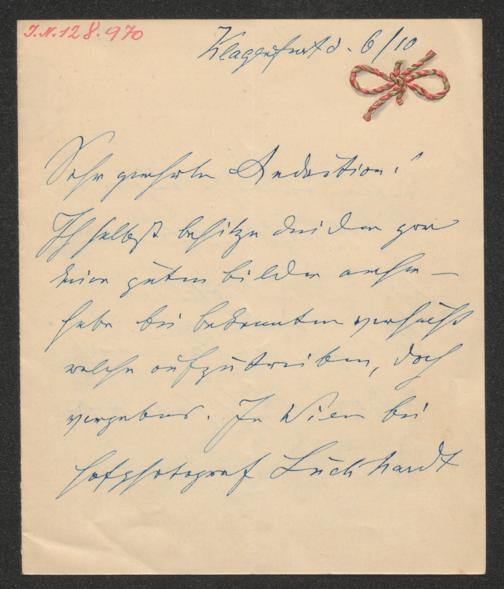 J.N. 128.970
Klagenfurt d. 6/10
Sehr geehrte Redaction!
Ich selbst besitze leider gar
keine guten bilder mehr –
habe bei bekannten versucht
welche aufzutreiben, doch
vergebens. In Wien bei
hofphotograf Luckhardt